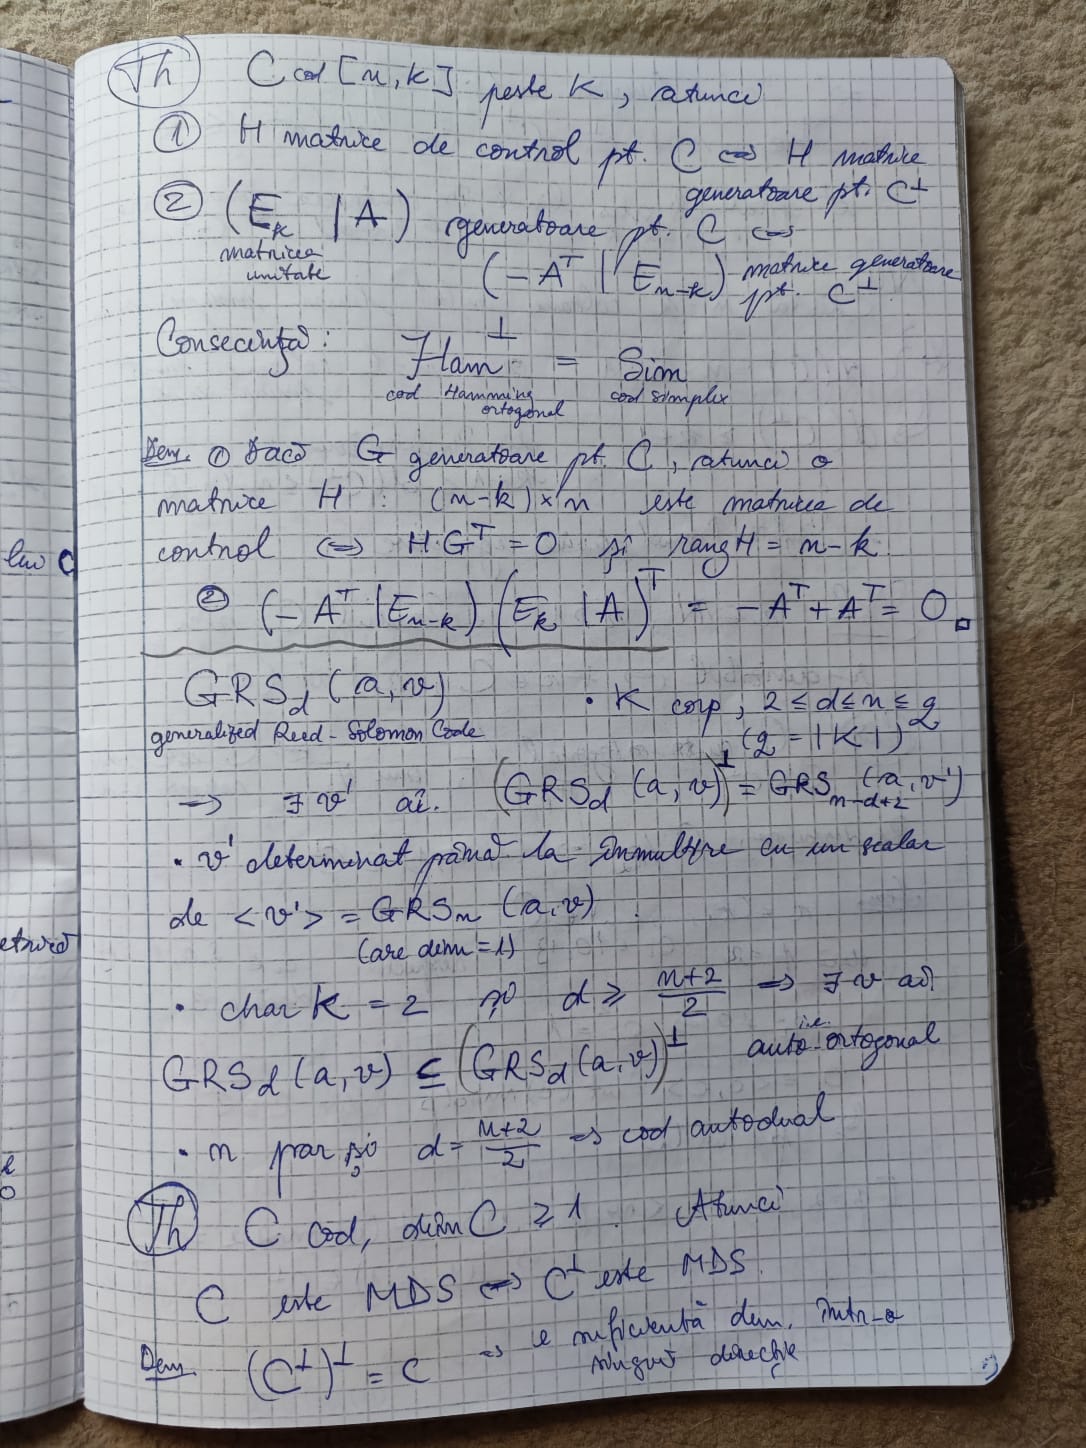 Th C cod [n, k] peste K, atunci
① H matrice de control pt. C ⇔ H matrice
generatoare pt. C⊥
② (E_k | A) generatoare pt. C ⇔
matricea
unitate
(-A^T | E_{n-k}) matrice generatoare
pt. C⊥
Consecință: Ham⊥ = Sim
cod Hamming cod simplex
ortogonal
Dem. ① Dacă G generatoare pt. C, atunci o
matrice H : (n-k)×n este matricea de
control ⇔ H·G^T = 0 și rang H = n-k
② (-A^T | E_{n-k}) (E_k | A)^T = -A^T + A^T = 0.
GRS_d (a, v) • K corp, 2 ≤ d ≤ n ≤ q
generalized Reed-Solomon Code (q = |K|)
⇒ ∃ v' aî. (GRS_d (a, v))⊥ = GRS_{n-d+2} (a, v')
• v' determinat până la înmulțire cu un scalar
de <v'> = GRS_n (a, v).
(are dim = 1)
• char K = 2 și d ≥ (n+2)/2 ⇒ ∃ v aî
GRS_d (a, v) ⊆ (GRS_d (a, v))⊥ i.e. auto-ortogonal
• n par și d = (n+2)/2 ⇒ cod autodual
Th C cod, dim C ≥ 1. Atunci
C este MDS ⇔ C⊥ este MDS.
Dem (C⊥)⊥ = C ⇒ e suficientă dem. într-o
singură direcție
lui C